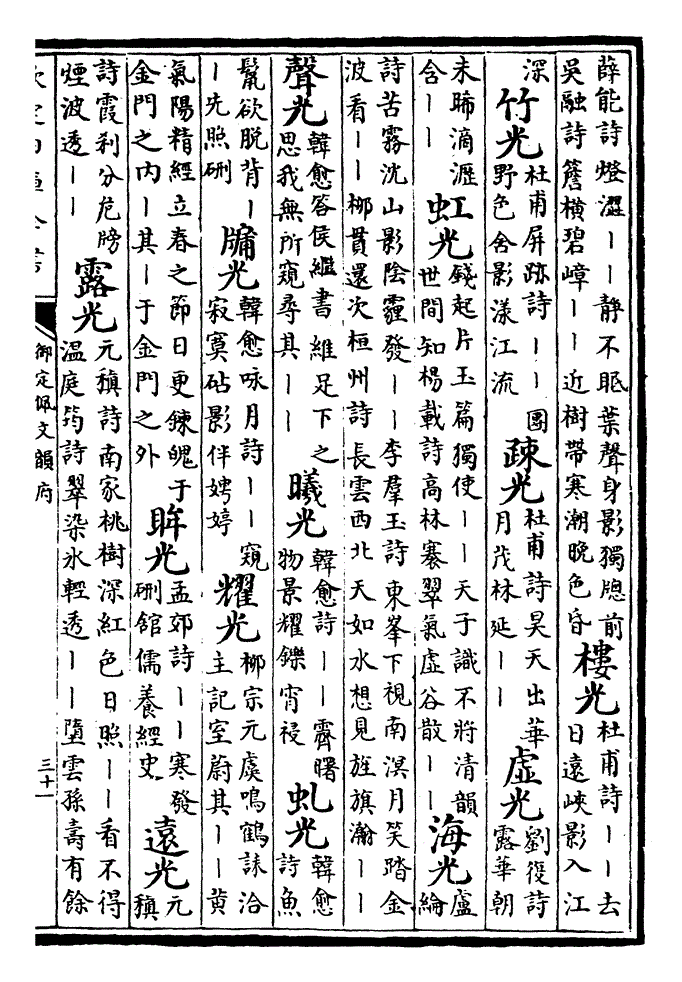 薛能詩燈澀丨丨靜不眠葉聲身影獨牎前
吳融詩簷橫碧嶂丨丨近樹帶寒潮晚色昏
樓光
杜甫詩丨丨去
日遠峽影入江
深
竹光
杜甫屏跡詩丨丨團
野色舍影漾江流
疎光
杜甫詩昊天出華
月茂林延丨丨
虛光
劉復詩
露華朝
未晞滴瀝
含丨丨
虹光
錢起片玉篇獨使丨丨天子識不將清韻
世間知楊載詩高林褰翠氣虛谷散丨丨
海光
盧
綸
詩苦霧沈山影陰霾發丨丨李羣玉詩東峯下視南溟月笑踏金
波看丨丨柳貫還次桓州詩長雲西北天如水想見旌旗瀚丨丨
聲光
韓愈答侯繼書維足下之
思我無所窺尋其丨丨
曦光
韓愈詩丨丨霽曙
物景耀鑠宵祲
虬光
韓愈
詩魚
鬣欲脫背丨
丨先照硎
牖光
韓愈咏月詩丨丨窺
寂寞砧影伴娉婷
耀光
柳宗元虞鳴鶴誄洽
主記室蔚其丨丨黄
氣陽精經立春之節日更鍊魄于
金門之内丨其丨于金門之外
眸光
孟郊詩丨丨寒發
硎館儒養經史
遠光
元
稹
詩霞刹分危牓
煙波透丨丨
露光
元稹詩南家桃樹深紅色日照丨丨看不得
温庭筠詩翠染氷輕透丨丨墮雲孫壽有餘
欽定四庫全書
御定佩文韻府
三十一